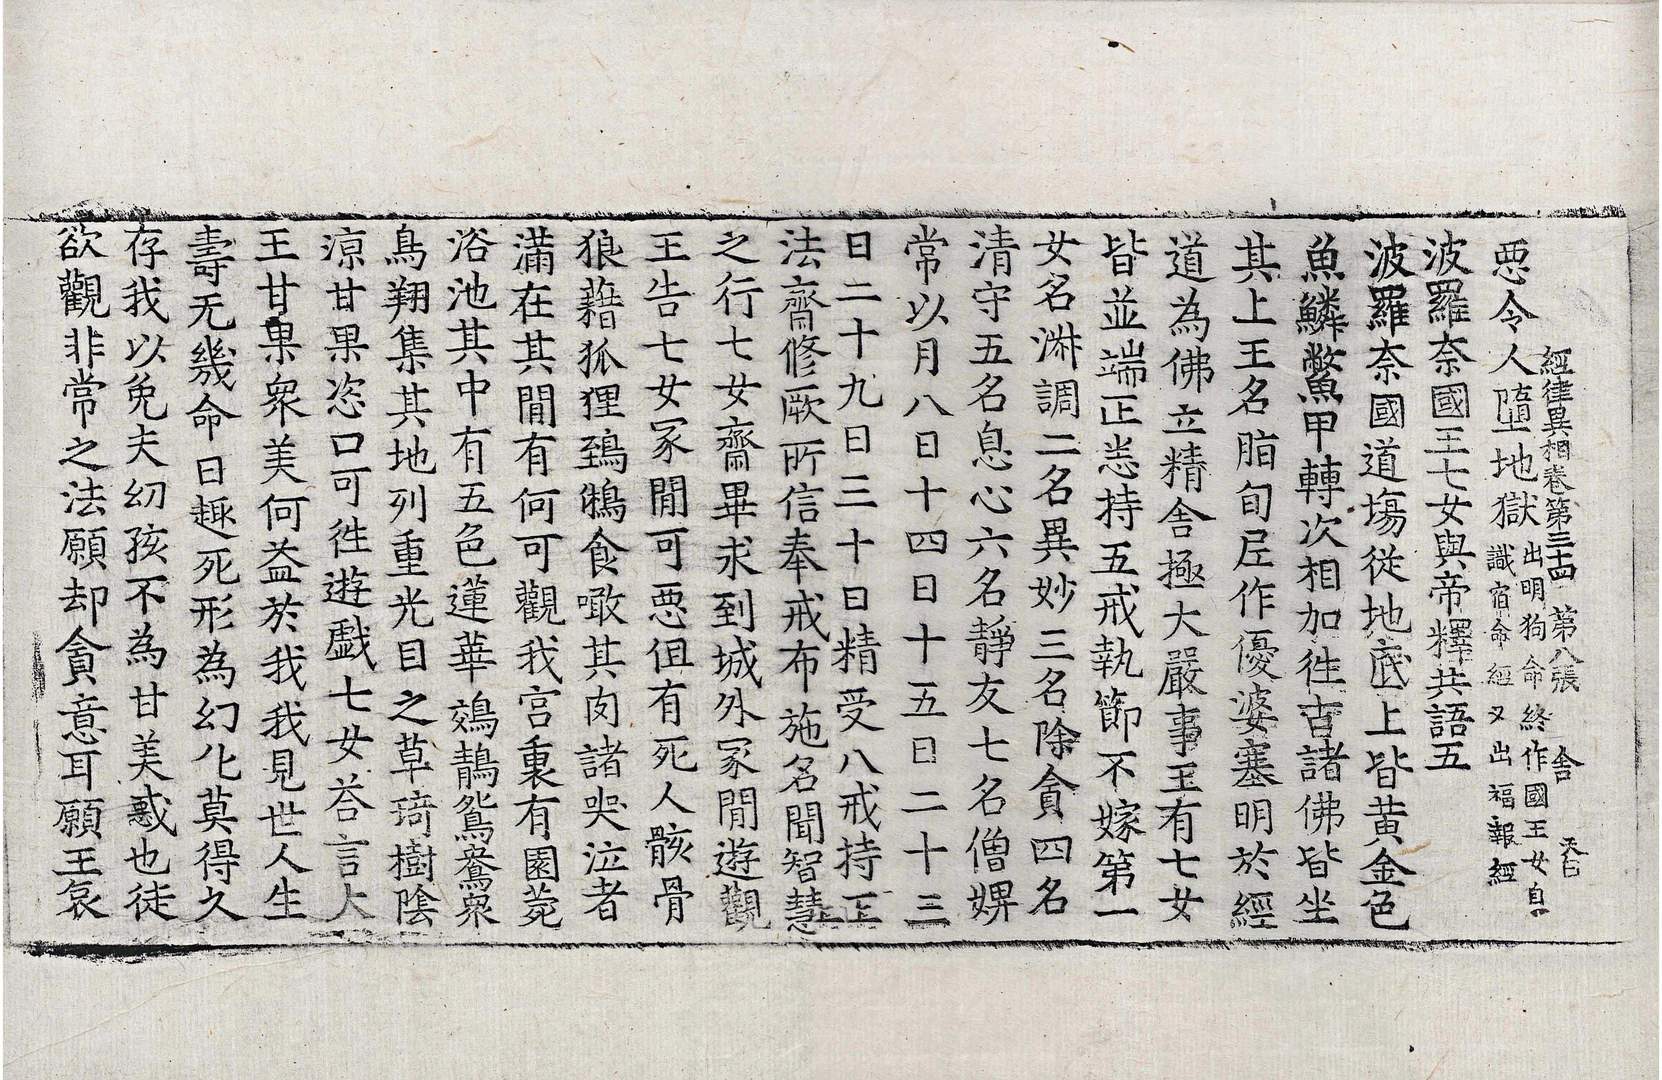 惡令人墮地獄 出明狗命終作國王女自
識宿命經又出福報經
經律異相卷第三十四 第八張 舍
波羅奈國王七女與帝釋共語五
波羅奈國道場從地底上皆黃金色
魚鱗鱉甲轉次相加徃古諸佛皆坐
其上王名脂旬𡰱作優婆塞明於經
道為佛立精舍極大嚴事王有七女
皆並端正恙持五戒執節不嫁第一
女名渊調二名異妙三名除貪四名
清守五名息心六名靜友七名僧婢
常以月八日十四日十五日二十三
日二十九日三十日精受八戒持正
法齋修厥所信奉戒布施名聞智慧
之行七女齋畢求到城外冢間遊觀
王告七女冢間可惡但有死人骸骨
狼藉狐狸鵄鵂食噉其肉諸哭泣者
滿在其間有何可觀我宮裏有園菀
浴池其中有五色蓮華鵁鶄鴛鴦衆
鳥翔集其地列重光目之草琦樹陰
涼甘果恣口可徃遊戲七女荅言大
王甘果衆美何益於我我見世人生
壽无幾命日趣死形為幻化莫得久
存我以免夫幼孩不為甘美惑也徒
欲觀非常之法願却貪意耳願王哀